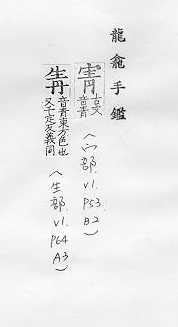 龍龕手鑑
古文音青
(宀部. V1. P53. B2)
音青東方色也
又千定反義同
(生部. V1. P64 A3)